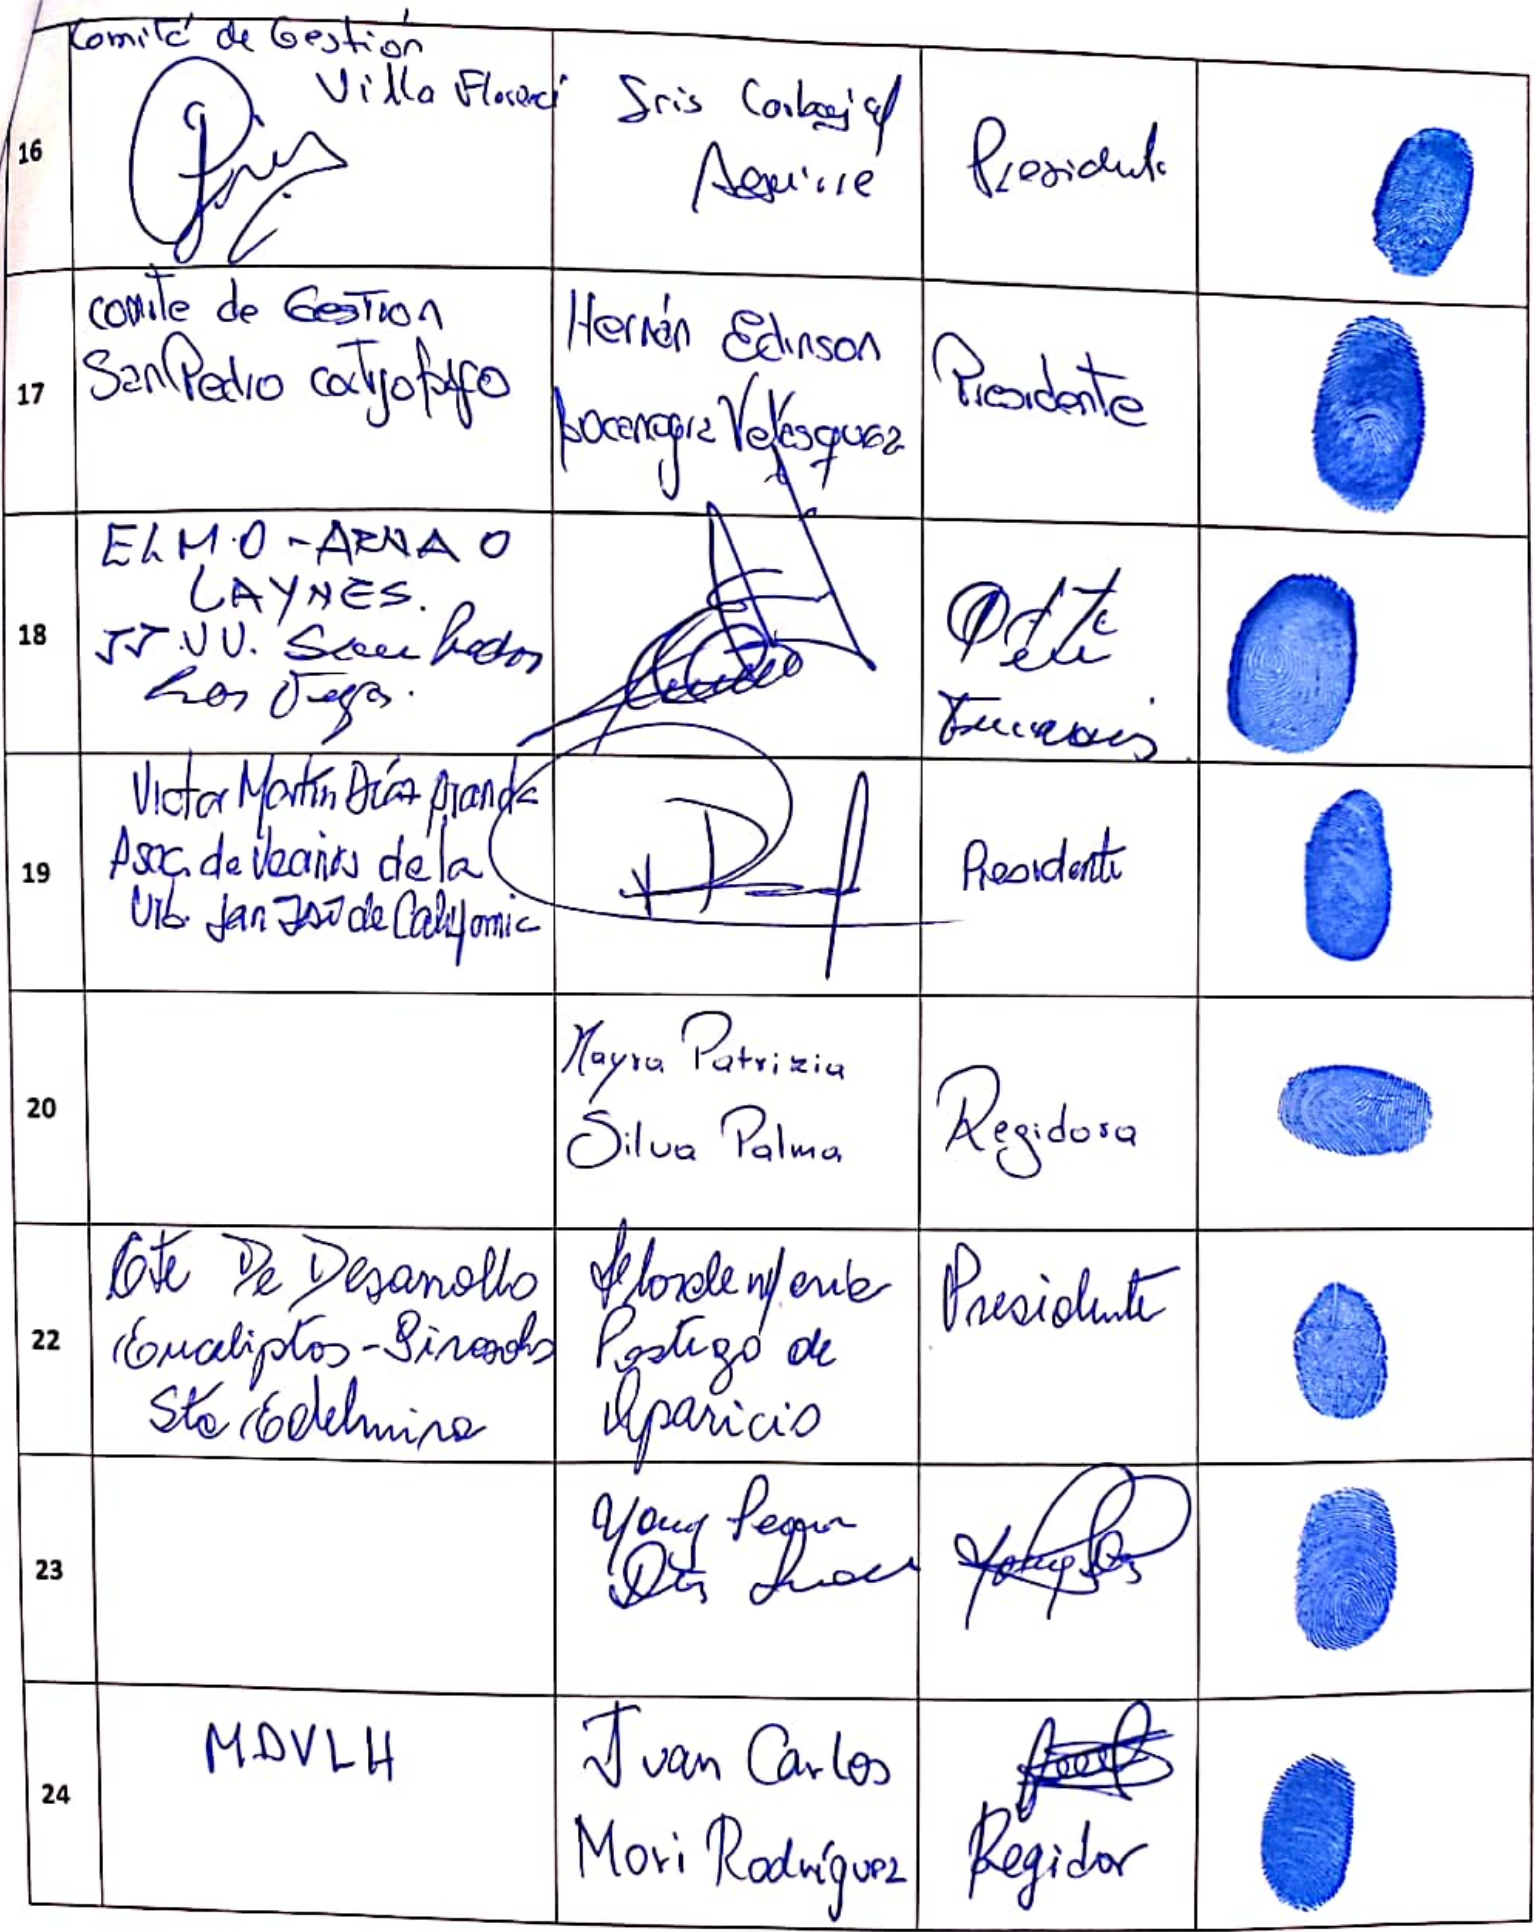 16
Comité de Gestión
Villa Floreci
Iris Carbajal
Aguirre
Presidenta
17
comite de Gestion
San Pedro
Hernán Edinson
bocanegra Velasquez
Presidente
18
ELMO - ARNAO
LAYNES.
JJ.VV.
Los
19
Victor Martín Díaz Aranda
Asoc. de Vecinos de la
Urb. San José de California
Presidente
20
Mayra Patrizia
Silva Palma
Regidora
22
Cte De Desarrollo
Eucaliptos - Girasoles
Sta Edelmira
Flor
Postigo de
Aparicio
Presidente
23
24
MDVLH
Juan Carlos
Mori Rodríguez
Regidor